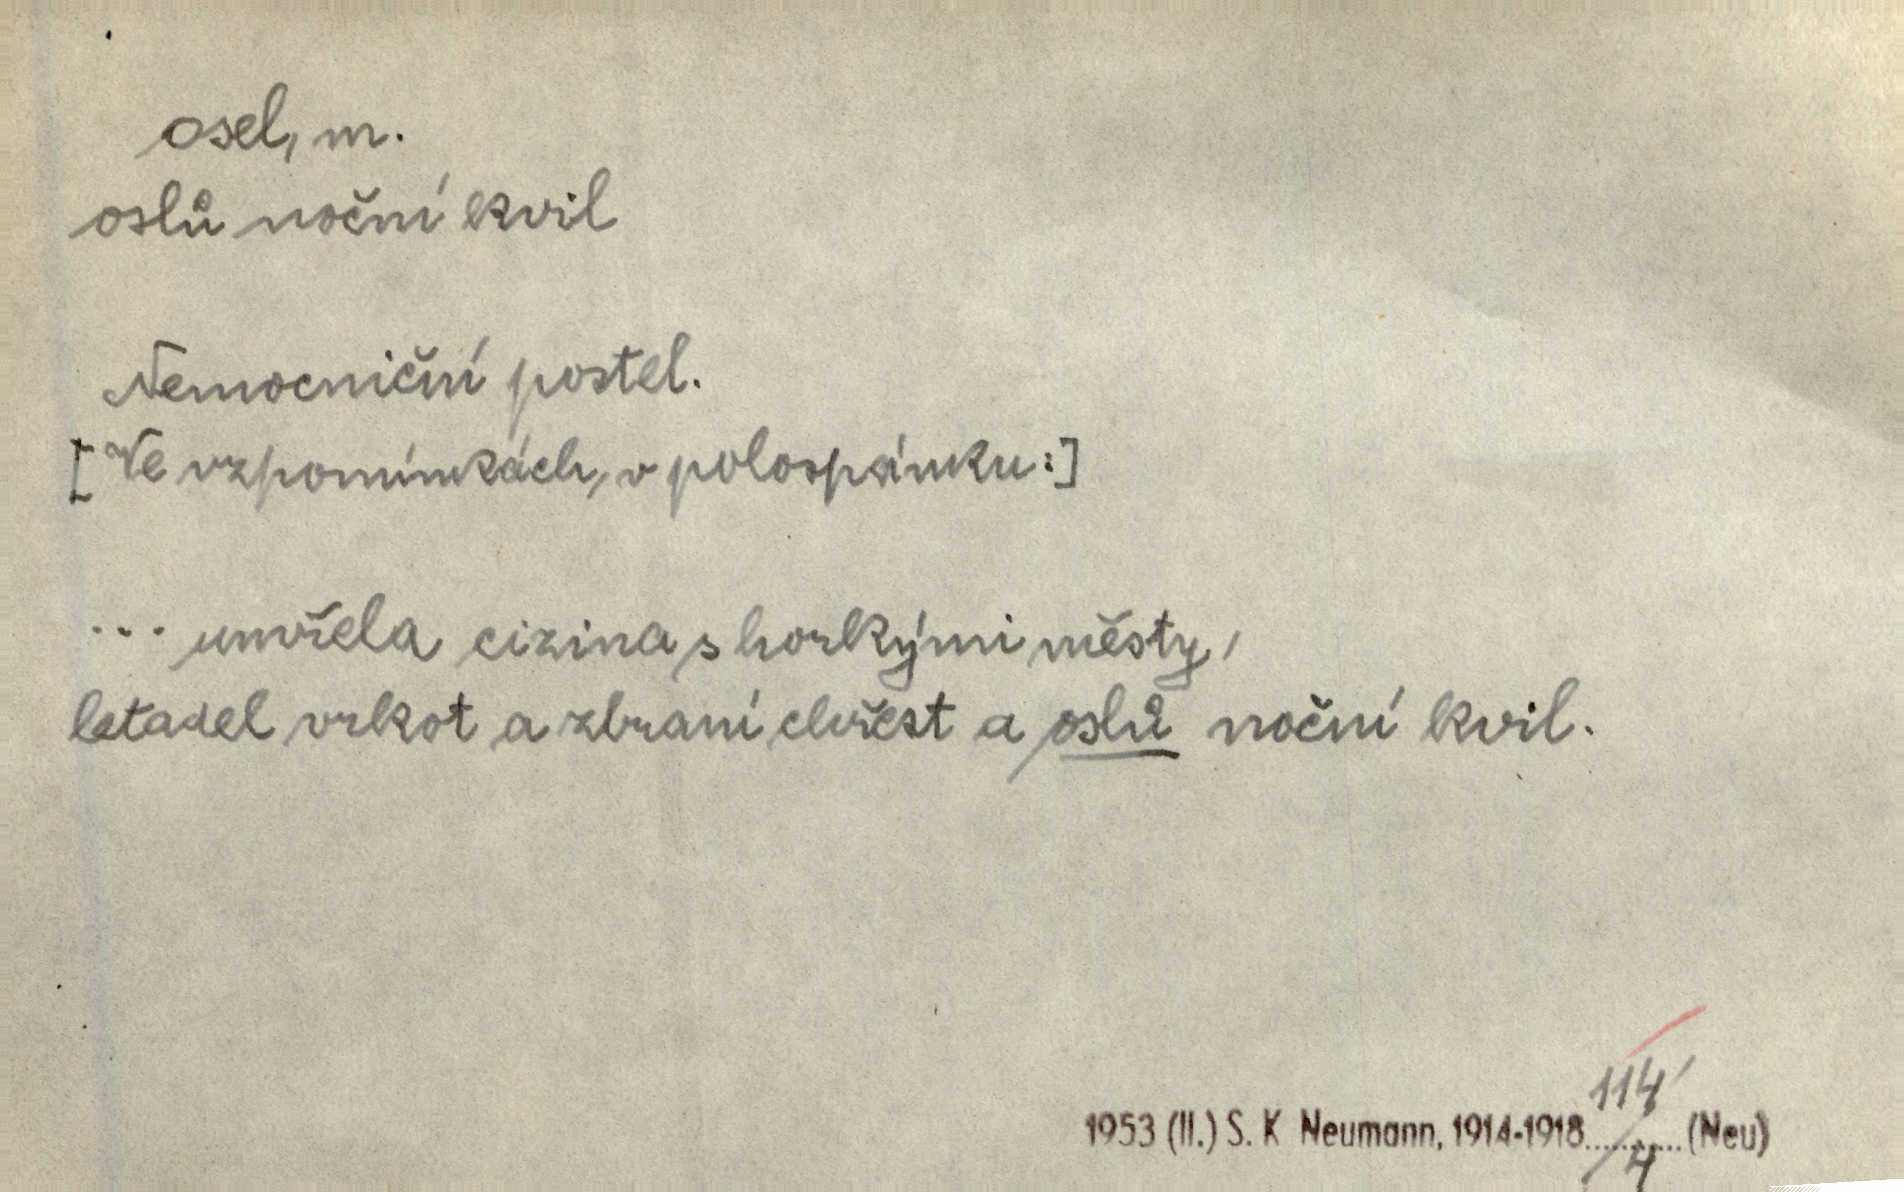 osel, m.
oslů noční kvil
Nemocniční postel.
[Ve vzpomínkách, v polospánku:]
... umřela cizina s horkými městy,
letadel vrkot a zbraní chřest a oslů noční kvil.
114/4
1953 (II.) S. K Neumann, 1914-1918 .......... (Neu)